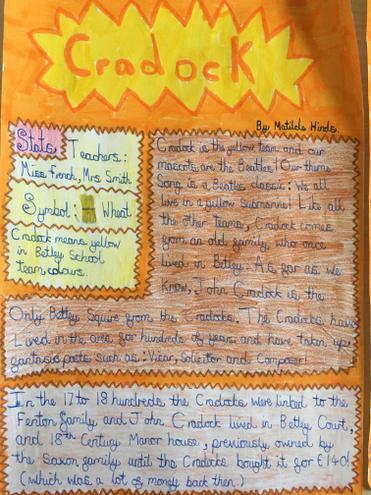 Cradock
By Matilda Hinds.
Stats
Teachers:
Miss French, Mrs Smith
Symbol: Wheat
Cradock means yellow
in Betley School
team colours.
Cradock is the yellow team and our
mascots are the Beatles! Our theme
Song is a Beatles classic: We all
live in a yellow submarine! Like all
the other teams, Cradock comes
from an old family, who once
lived in Betley. As far as we
know, John Cradock is the
Only Betley Squire from the Cradocks. The Cradocks have
Lived in the area for hundreds of years and have taken up
fantastic posts such as: Vicar, Solicitor and Composer!
In the 17 to 18 hundreds the Cradocks were linked to the
Fenton family and John Cradock lived in Betley Court,
and 18th Century Manor house, previously owned by
the Saxon family until the Cradocks bought it for £140!
(which was a lot of money back then.)